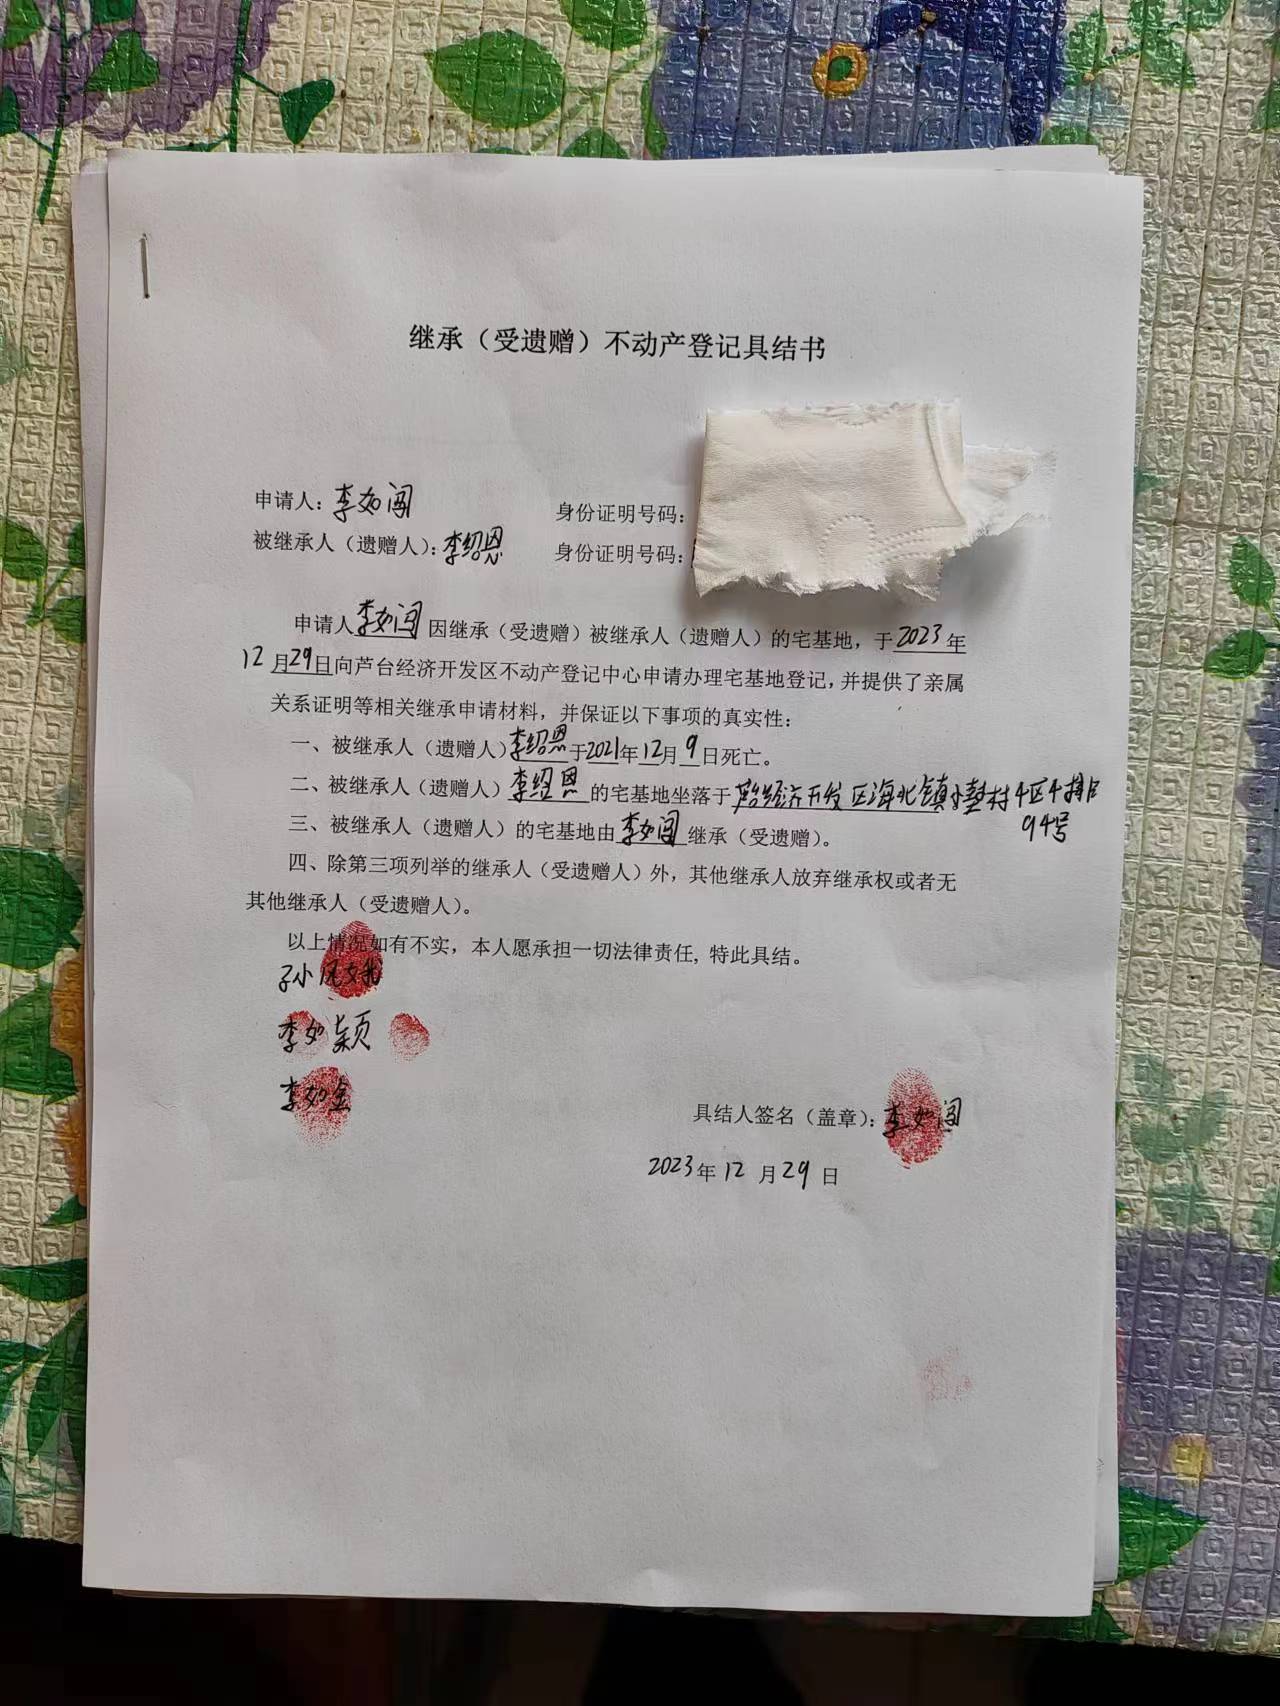 继承（受遗赠）不动产登记具结书
申请人：李如闯 身份证明号码：
被继承人（遗赠人）：李绍恩 身份证明号码：
申请人李如闯因继承（受遗赠）被继承人（遗赠人）的宅基地，于2023年
12月29日向芦台经济开发区不动产登记中心申请办理宅基地登记，并提供了亲属
关系证明等相关继承申请材料，并保证以下事项的真实性：
一、被继承人（遗赠人）李绍恩于2021年12月9日死亡。
二、被继承人（遗赠人）李绍恩的宅基地坐落于芦台经济开发区海北镇小垫村4区4排
94号
三、被继承人（遗赠人）的宅基地由李如闯继承（受遗赠）。
四、除第三项列举的继承人（受遗赠人）外，其他继承人放弃继承权或者无
其他继承人（受遗赠人）。
以上情况如有不实，本人愿承担一切法律责任, 特此具结。
李如颖
李如金
具结人签名（盖章）：李如闯
2023年12月29日